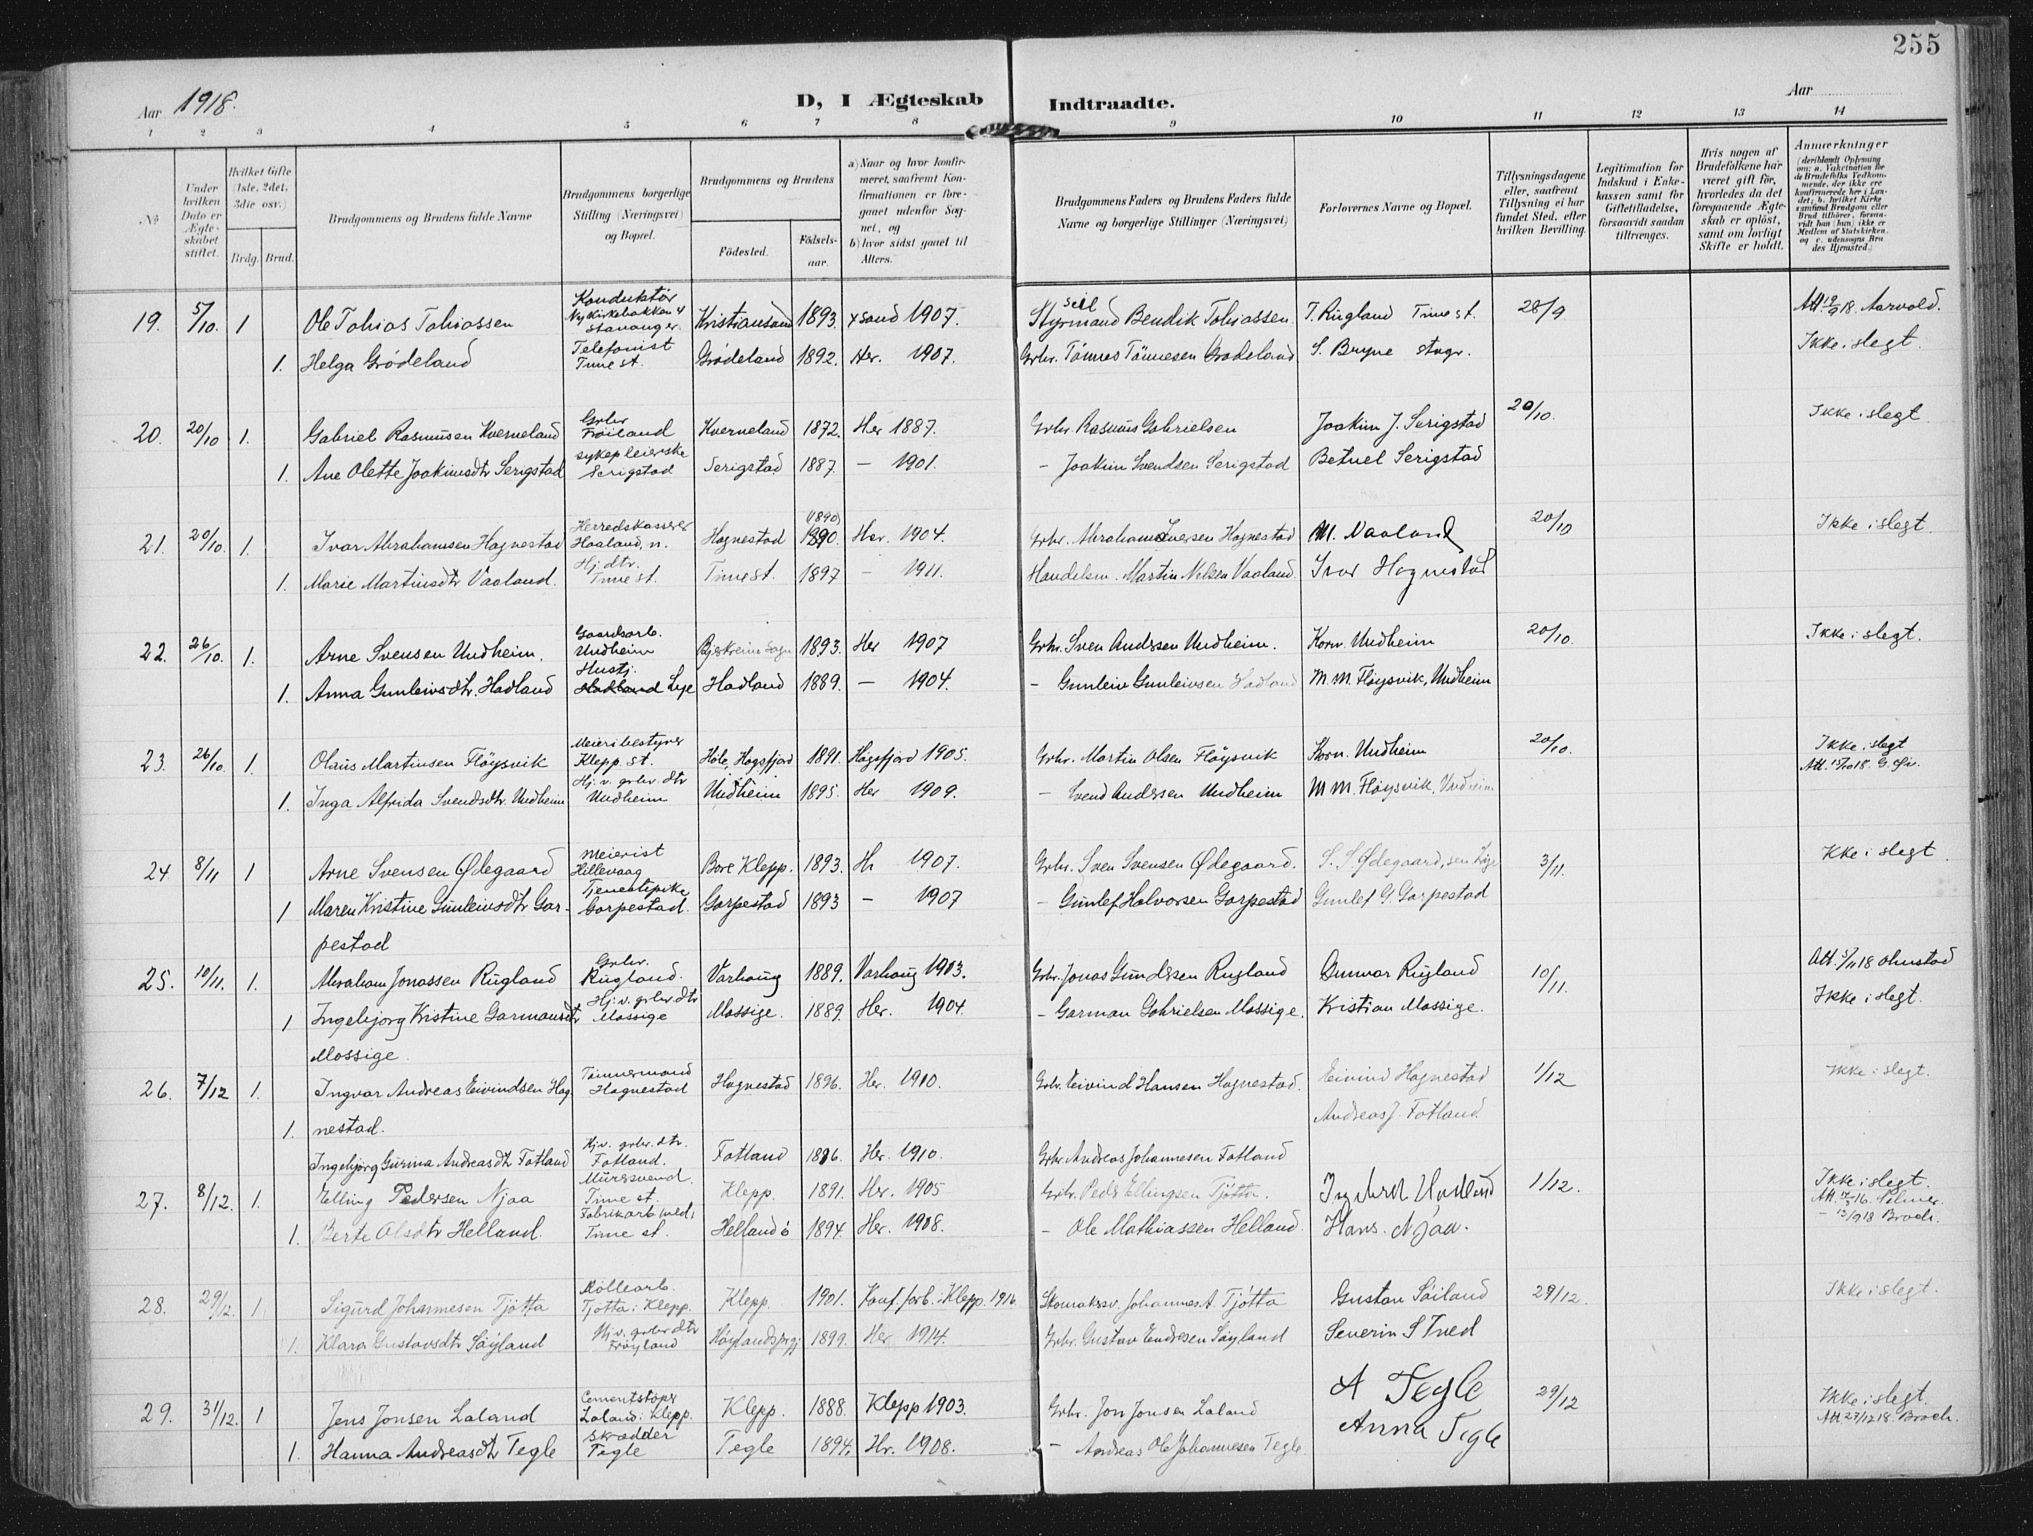 255
Aar 1918.
D, I Ægteskab Indtraadte.
Aar
1 2 3 4 5 6 7 8 9 10 11 12 13 14
No.
Under hvilken Dato er Ægteskabet stiftet.
Hvilket Gifte (1ste, 2det, 3die osv.)
Brdg. Brud.
Brudgommens og Brudens fulde Navne
Brudgommens borgerlige Stilling (Næringsvei) og Bopæl.
Brudgommens og Brudens
Fødested.
Fødselsaar.
a) Naar og hvor konfirmeret, saafremt Konfirmationen er foregaaet udenfor Sognet, og
b) hvor sidst gaaet til Alters.
Brudgommens Faders og Brudens Faders fulde Navne og borgerlige Stillinger (Næringsvei)
Forlovernes Navne og Bopæl.
Tillysningsdagene eller, saafremt Tillysning ei har fundet Sted, efter hvilken Bevilling.
Legitimation for Indskud i Enkekassen samt for Giftetilladelse, forsaavidt saadan tiltrænges.
Hvis nogen af Brudefolkene har været gift før, hvorledes da det foregaaende Ægteskab er opløst, samt om lovligt Skifte er holdt.
Anmerkninger
19. 5/10. 1 Ole Tobias Tobiassen Konduktør Ny Kirkebakken 4 Stavanger Kristiansand 1893. xsand 1907. Styrmand Bendik Tobiassen T. Rugland Time st. 28/9 Att 19/9 18. Aarvold.
1. Helga Grödeland Telefonist Time st. Grödeland 1892. Her. 1907. Grbr. Tönnes Tönnesen Grödeland S. Bryne Stvgr. Ikke i slegt.
20. 20/10 1. Gabriel Rasmusen Kverneland Grbr Fröiland Kverneland 1872. Her 1887. Grbr. Rasmus Gabrielsen Joakim J. Serigstad 20/10. Ikke i slegt
1. Ane Olette Joakimsdtr Serigstad Sykepleierske Serigstad Serigstad 1887. — 1901. – Joakim Svendsen Serigstad Betuel Serigstad
21. 20/10. 1. Ivar Abrahamsen Hognestad Herredskasserer Haaland, n. Hognestad 1890. (1890) Her. 1904. Grbr. Abraham Iversen Hognestad M. Vaaland 20/10 Ikke i slegt
1. Marie Martinsdtr Vaaland. Hj. dtr. Time st. Time st. 1897 – 1911. Handelsm. Martin Nilsen Vaaland Ivar Hognestad
22. 26/10. 1. Arne Svensen Undheim. Gaardsarb. Undheim Bjerkreim sogn 1893. Her 1907 Grbr. Sven Andersen Undheim. Korn. Undheim 20/10. Ikke i slegt.
1. Anna Gunleivsdtr. Hadland Hustj. Lye Hadland 1889. – 1904. – Gunleiv Gunleivsen Hadland M. M. Fløysvik, Undheim
23. 26/10. 1. Olaus Martinsen Fløysvik Meieribestyrer Klepp st. Höle, Högsfjord 1891. Högsfjord 1905. Grbr. Martin Olsen Fløysvik Korn. Undheim 20/10. Ikke i slegt
1. Inga Alfrida Svendsdtr. Undheim Hj. v. grbr dtr Undheim Undheim 1895. Her 1909. – Svend Andersen Undheim M. M. Fløysvik, Undheim
24. 8/11 1 Arne Svensen Ødegaard Meierist Hillevaag Bore Klepp. 1893. H. 1907. Grbr. Sven Svensen Ødegaard. S. S. Ødegaard, sen. Lye 3/11. Ikke i slegt.
1 Maren Kristine Gunleivsdtr Gar- Tjenestepike Garpestad. Garpestad 1893 – 1907 – Gunlef Halvorsen Garpestad Gunlef G. Garpestad
pestad
25. 10/11. 1. Abraham Jonassen Rugland Grbr. Rugland. Varhaug 1889. Varhaug 1903. Grbr. Jonas Gundersen Rugland Gunvar Rugland 10/11. Att. 5/11 18 Omstad
1 Ingebjorg Kristine Garmansdtr Hj. v. grbr dtr Mossige Mossige. 1889. Her. 1904. – Garman Gabrielsen Mossige. Kristian Mossige. Ikke i slegt.
Mossige.
26. 7/12 1. Ingvar Andreas Eivindsen Hog- Tömmermand Hognestad Hognestad 1896. Her. 1910. Grbr. Eivind Hansen Hognestad. Eivind Hognestad 1/12 Ikke i slegt.
1. nestad. Andreas J. Fotland.
Ingebjörg Gurina Andreasdtr Fotland Hj. v. grbr. dtr. Fotland. Fotland 1896. Her. 1910. Grbr Andreas Johannesen Fotland
27. 8/12. 1. Elling Pedersen Njaa Murersvend. Time st. Klepp. 1891. Her. 1905 Grbr. Peder Ellingsen Tjötta. 1/12. Ikke i slegt.
1. Berte Olsdtr Helland. Fabrikarb. Time st. Helland ö 1894. Her. 1908. – Ole Mathiassen Helland. Hans. Njaa. – 13/9 18 Broch.
28. 29/12. 1. Sigurd Johannesen Tjötta Möllearb. Tjötta i Klepp. Klepp. 1901. Konf. forb. i Klepp. 1916. Skomakrsv. Johannes A. Tjötta Gustav Söiland 29/12. Ikke i slegt.
1. Klara Gustavsdtr Söyland Hj. v. grbr dtr Fröyland 1899. Her 1914. Grbr. Gustav Endresen Söyland Severin S Tved
29. 31/12. 1 Jens Jonsen Laland Cementstöper Laland i Klepp. Klepp. 1888. Klepp 1903. Grbr. Jon Jonsen Laland A Tegle 29/12 Ikke i slegt.
Att 27/12 18. Broch.
1. Hanna Andreasdtr Tegle Skredder Tegle Tegle 1894. Hr. 1908. – Andreas Ole Johannesen Tegle Anna Tegle